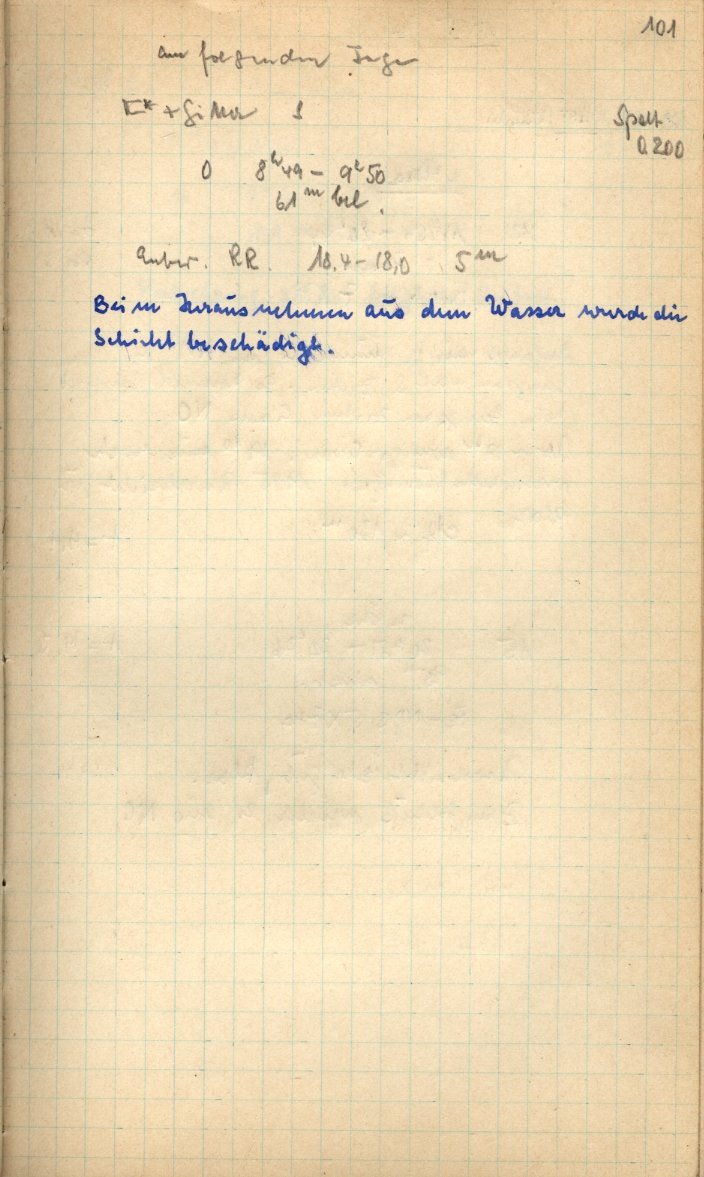 101
am folgenden Tage
K* + Gitter 1
Spalt
0.200
0 8h49 – 9h50
61m bel.
Entw. RR. 18.4 – 18,0 5m
Beim Herausnehmen aus dem Wasser wurde die
Schicht beschädigt.